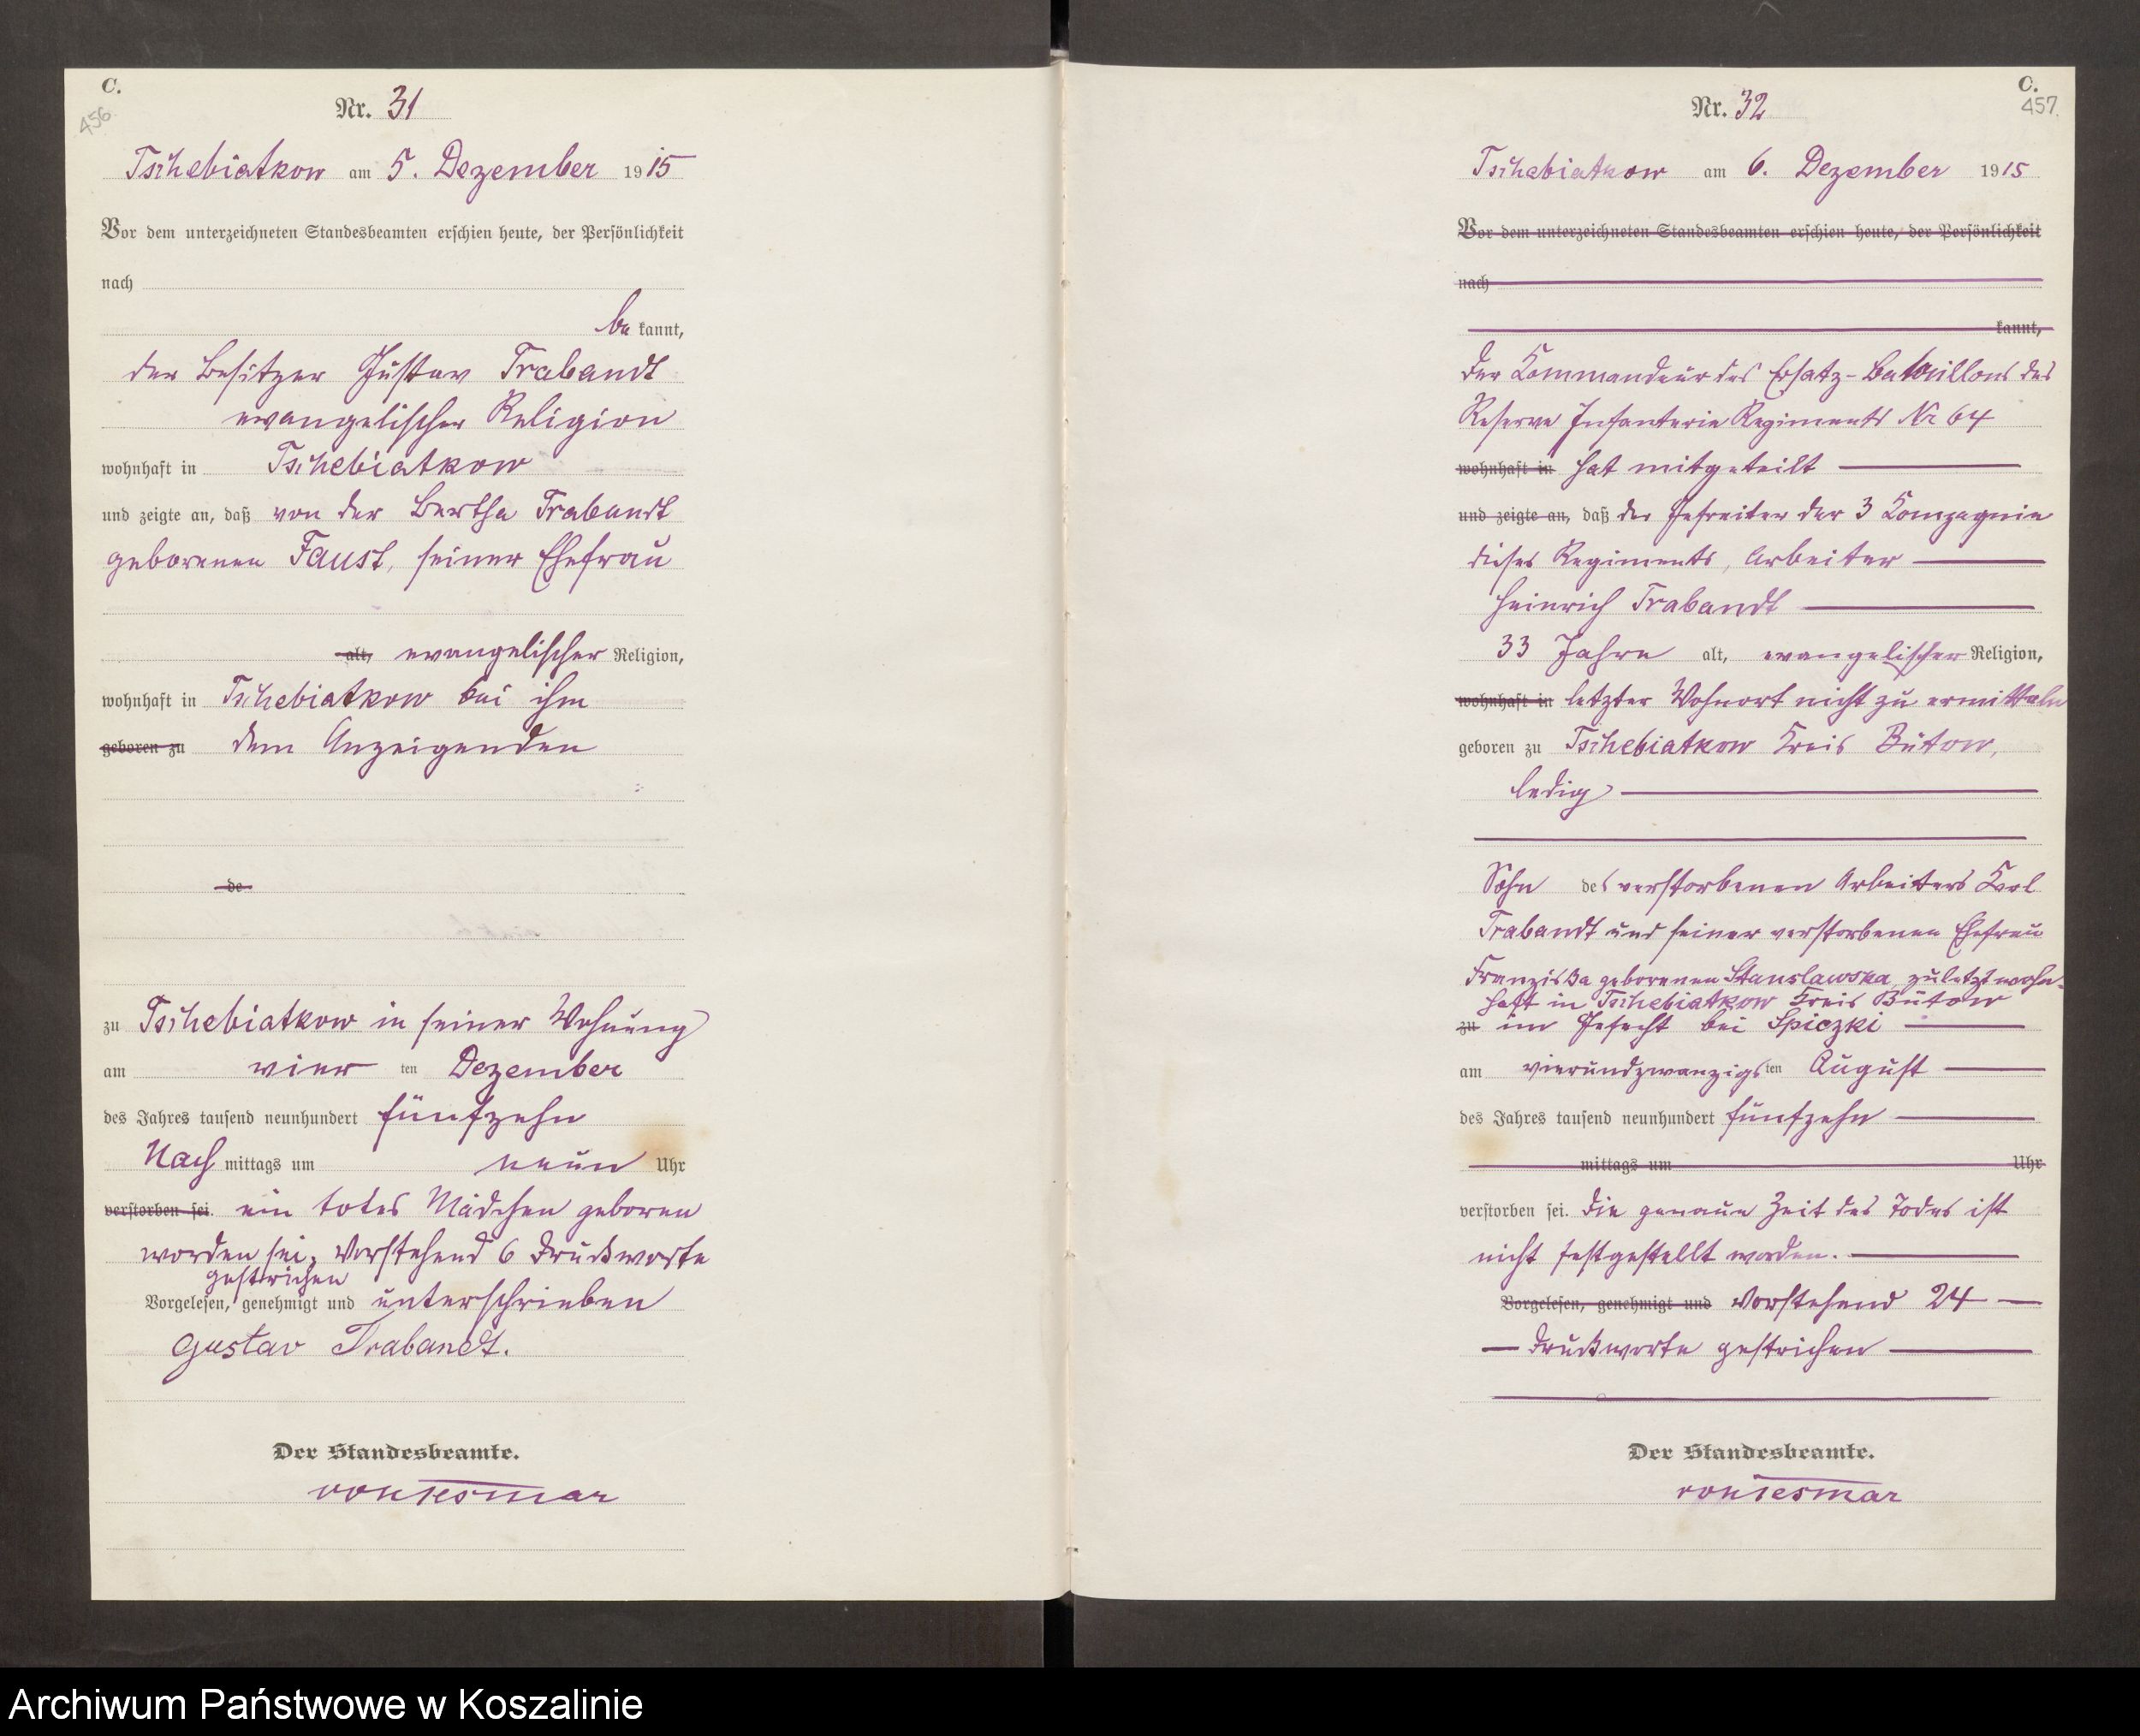 C.
456.
Nr. 31
Tschebiatkow am 5. Dezember 1915
Vor dem unterzeichneten Standesbeamten erschien heute, der Persönlichkeit
nach
be kannt,
der Besitzer Gustav Trabandt
evangelischer Religion
wohnhaft in Tschebiatkow
und zeigte an, daß von der Bertha Trabandt
geborenen Faust, seiner Ehefrau
alt, evangelischer Religion,
wohnhaft in Tschebiatkow bei ihm
geboren zu dem Anzeigenden
de
zu Tschebiatkow in seiner Wohnung
am vier ten Dezember
des Jahres tausend neunhundert fünfzehn
Nach mittags um neun Uhr
verstorben sei. ein totes Mädchen geboren
worden sei, Vorstehend 6 Druckworte
gestrichen
Vorgelesen, genehmigt und unterschrieben
Gustav Trabandt.
Der Standesbeamte.
von Tesmar
C.
457.
Nr. 32
Tschebiatkow am 6. Dezember 1915
Vor dem unterzeichneten Standesbeamten erschien heute, der Persönlichkeit
nach
kannt,
Der Kommandeur des Ersatz-Bataillons des
Reserve Infanterie Regiments Nr 64
wohnhaft in hat mitgeteilt
und zeigte an, daß der Gefreiter der 3 Kompagnie
dieses Regiments, Arbeiter
Heinrich Trabandt
33 Jahre alt, evangelischer Religion,
wohnhaft in letzter Wohnort nicht zu ermitteln
geboren zu Tschebiatkow Kreis Bütow,
ledig
Sohn des verstorbenen Arbeiters Karl
Trabandt und seiner verstorbenen Ehefrau
Franziska geborenen Stanslawska, zuletzt wohn-
haft in Tschebiatkow Kreis Bütow
zu im Gefecht bei Spiczki
am vierundzwanzigsten August
des Jahres tausend neunhundert fünfzehn
mittags um Uhr
verstorben sei. Die genaue Zeit des Todes ist
nicht festgestellt worden.
Vorgelesen, genehmigt und Vorstehend 24
Druckworte gestrichen
Der Standesbeamte.
von Tesmar
Archiwum Państwowe w Koszalinie